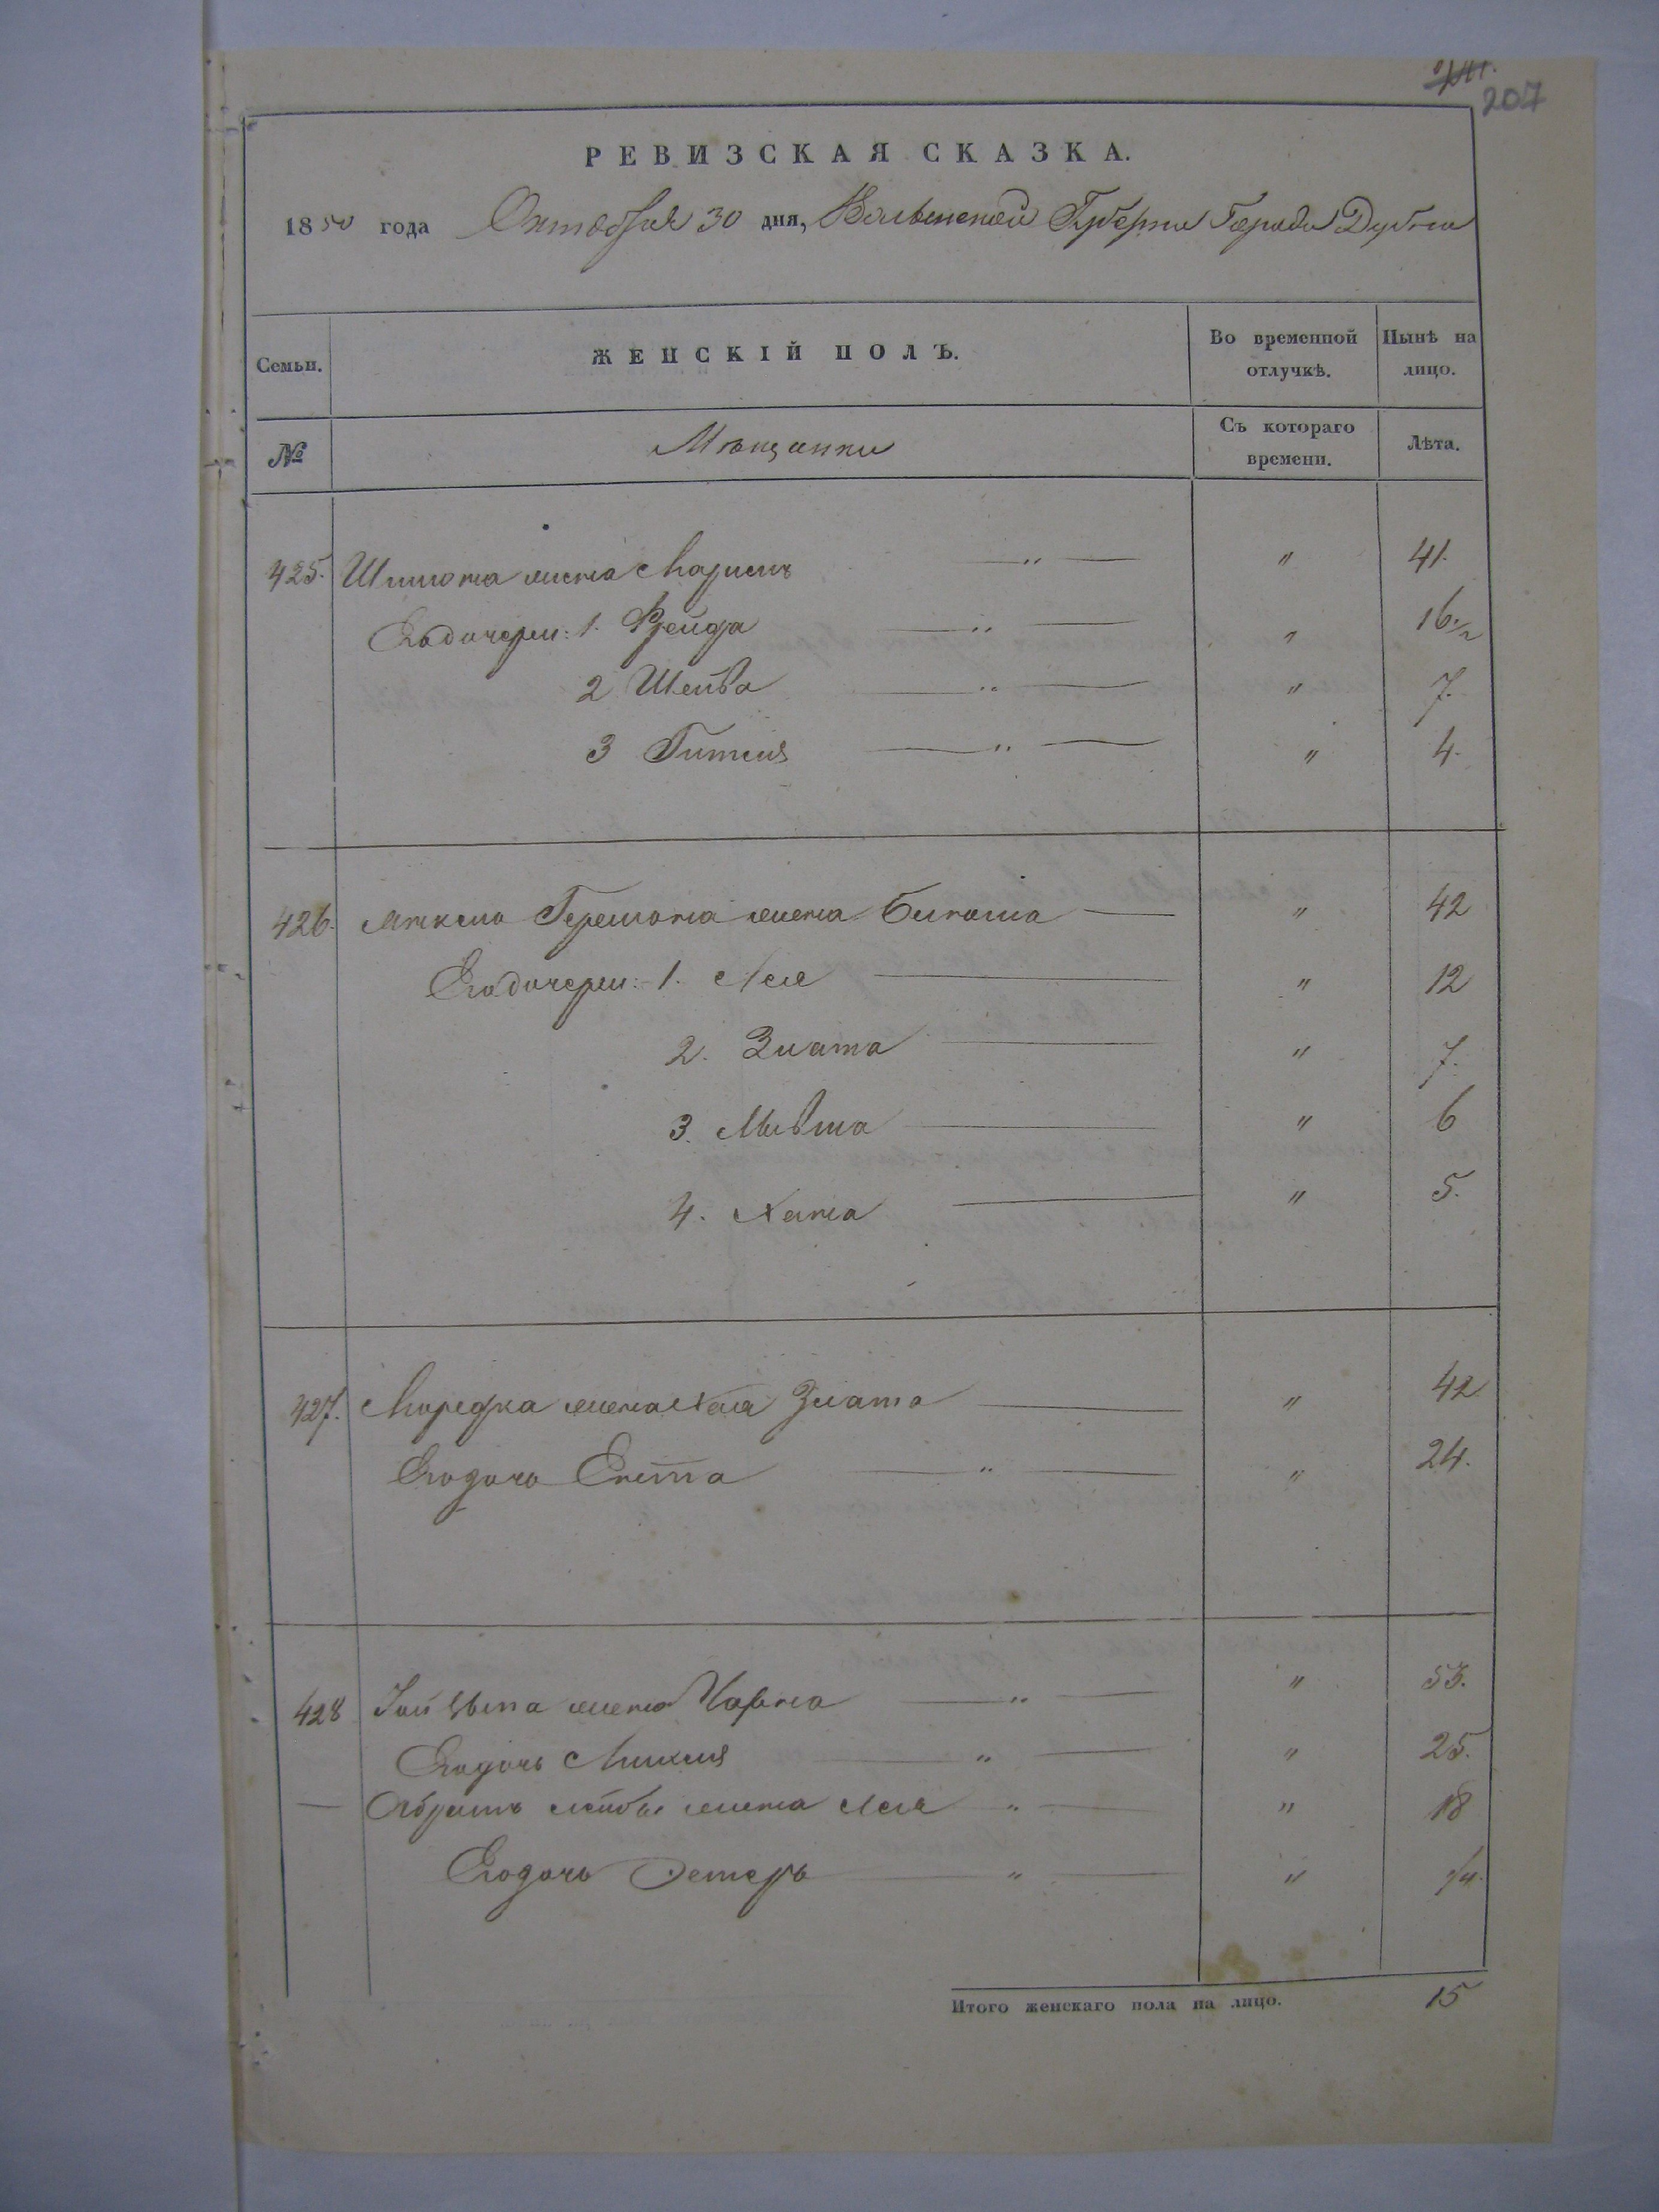 207
РЕВИЗСКАЯ СКАЗКА.
1850 года Октября 30 дня, Волынской Губернии Города Дубна
Семьи. ЖЕНСКІЙ ПОЛЪ. Во временной отлучкѣ. Нынѣ на лицо.
№ Мѣщанки Съ котораго времени. Лѣта.
425. Шлиома жена Мариемъ " 41.
Его дочери: 1. Фрейда " 16 1/2
2 Шейва " 7.
3 Гитля " 4.
426. жена " 42
Его дочери: 1. Лея " 12
2. Злата " 7.
3. " 6
4. Хана " 5.
427. Мордка жена Хая Злата " 42
Его дочь Ента " 24.
428 жена Чарна " 53.
Его дочь " 25.
— Лейбы жена Лея " 18
Его дочь Эстеръ " 1/4.
Итого женскаго пола на лицо. 15